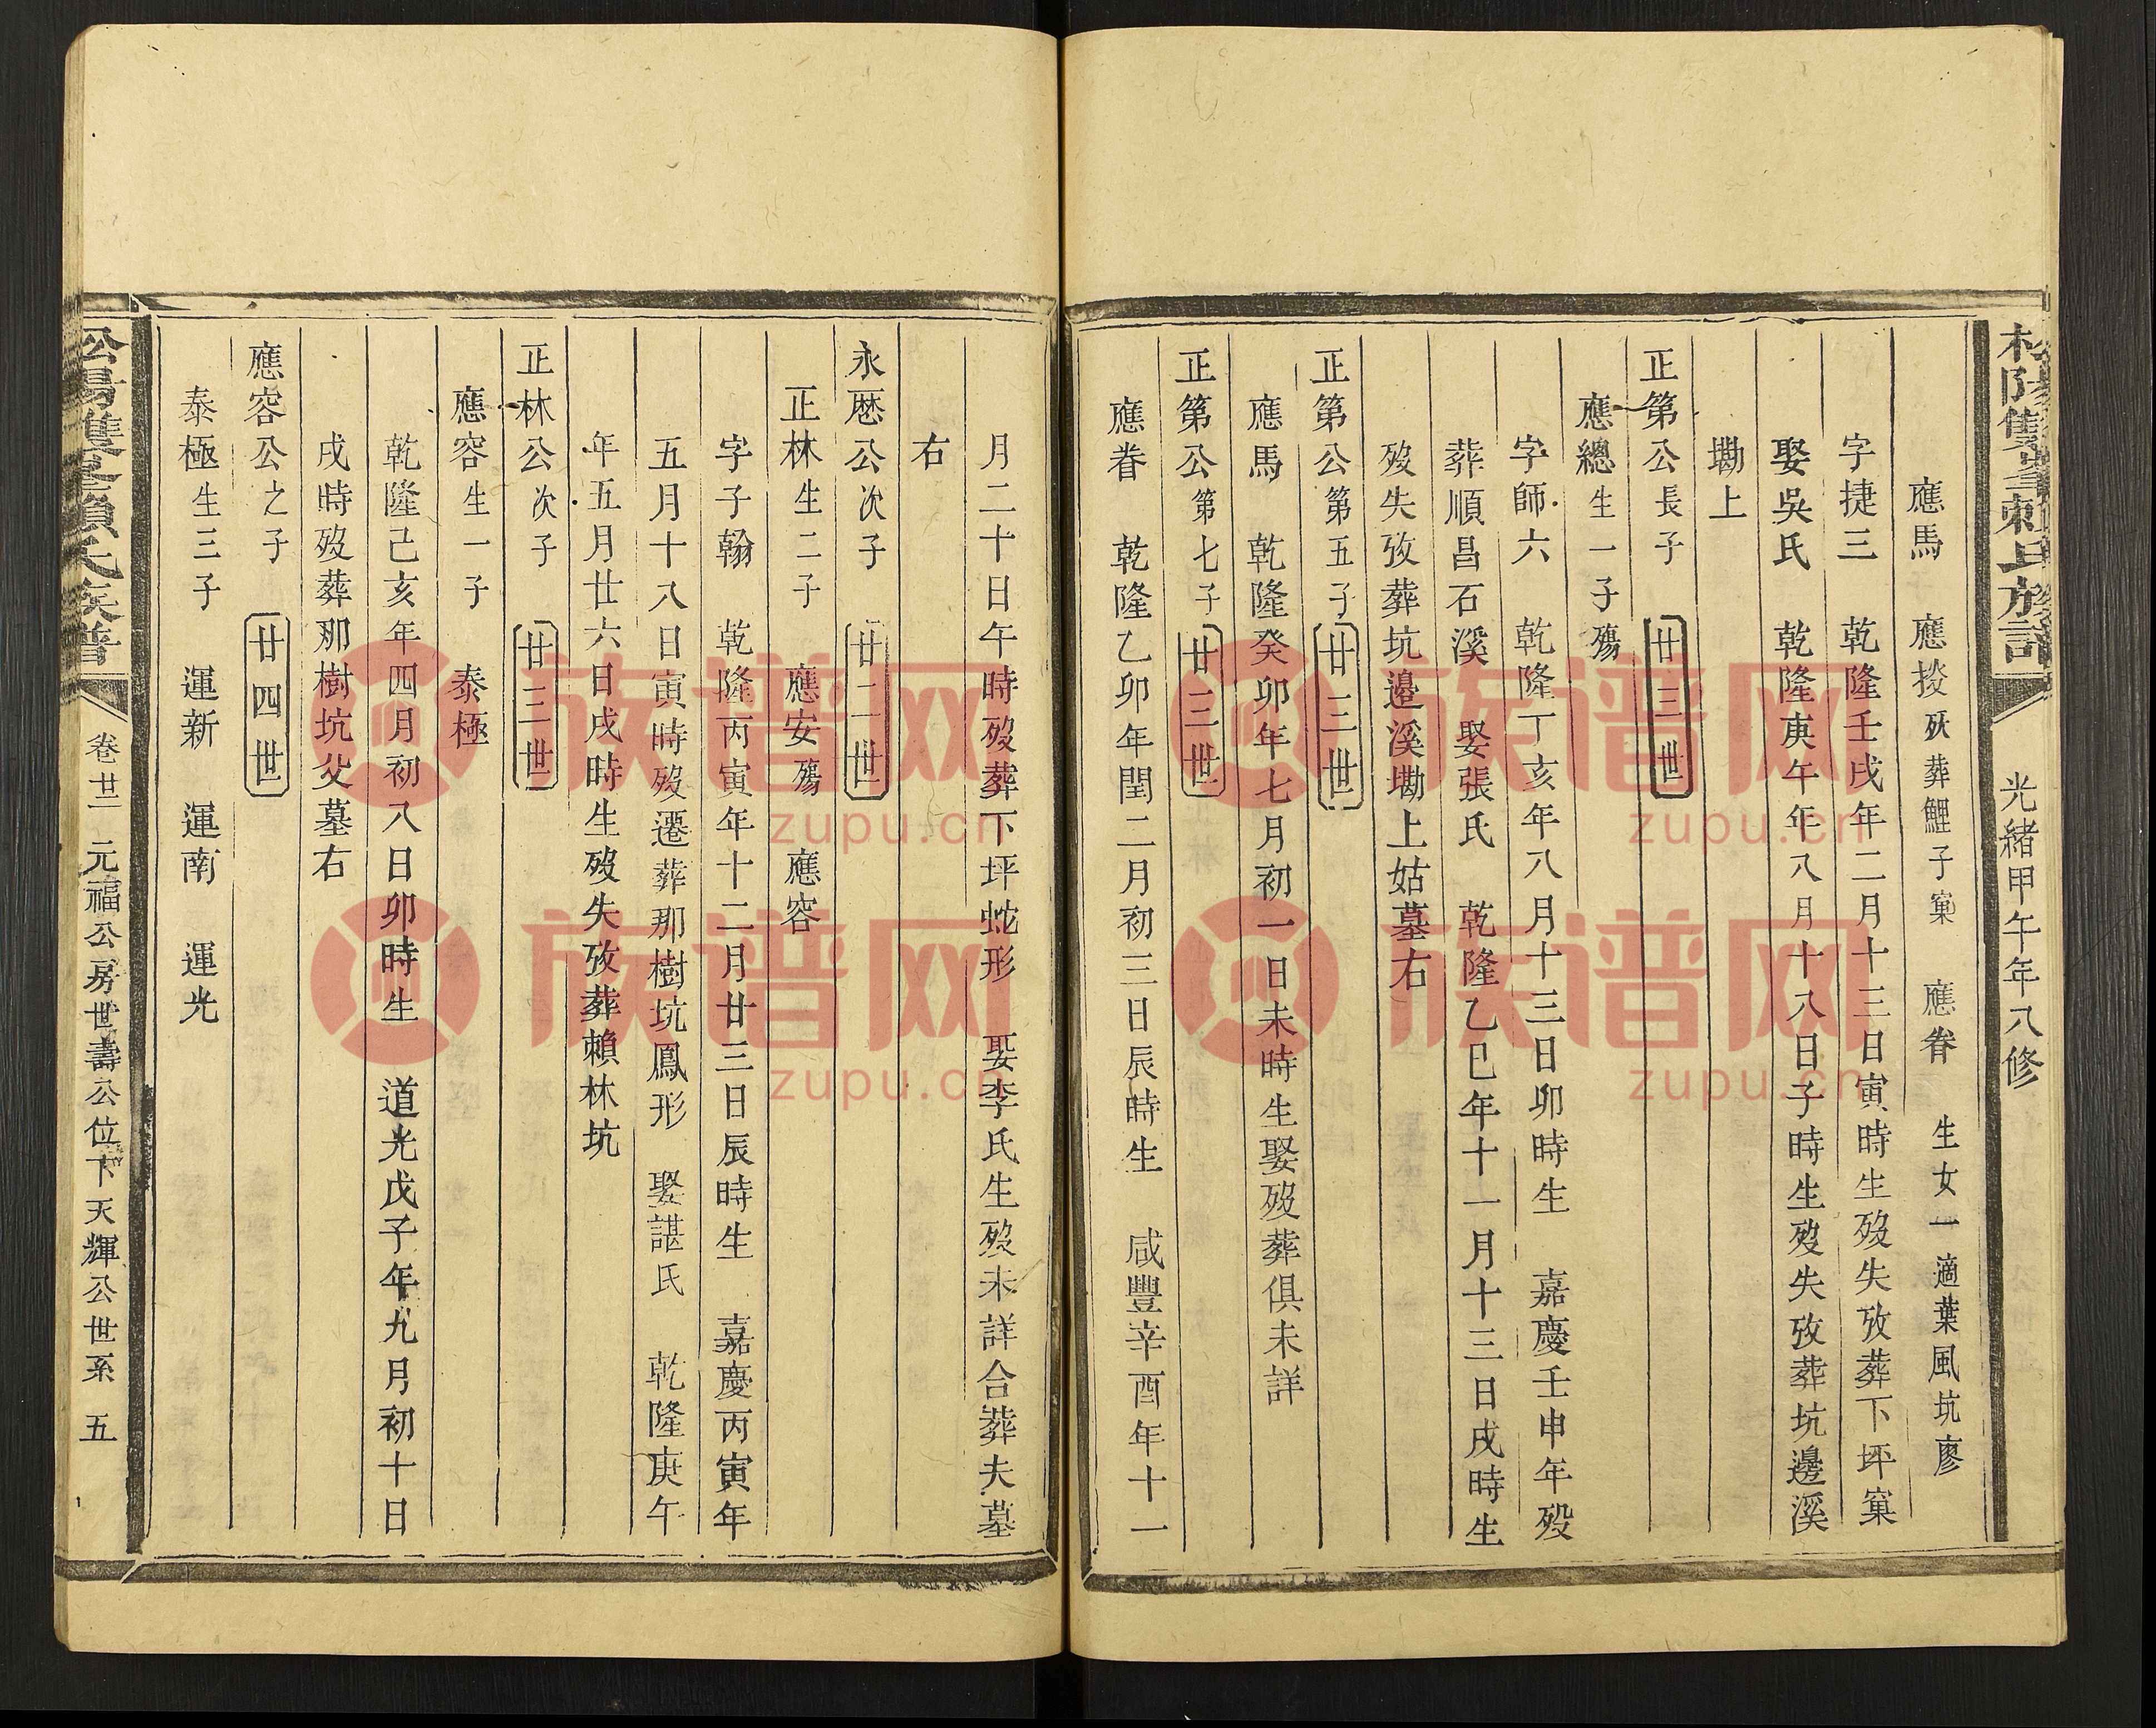 松陽雙峯賴氏族譜 光緒甲午年八修
應馬 應掞 殀葬鯉子窠 應眷 生女一適葉風坑廖
字捷三 乾隆壬戌年二月十三日寅時生歿失攷葬下坪窠
娶吳氏 乾隆庚午年八月十八日子時生歿失攷葬坑邊溪
墈上
正第公長子 廿三世
應總生一子殤
字師六 乾隆丁亥年八月十三日卯時生 嘉慶壬申年歿
葬順昌石溪 娶張氏 乾隆乙巳年十一月十三日戌時生
歿失攷葬坑邉溪墈上姑墓右
正第公第五子 廿三世
應馬 乾隆癸卯年七月初一日未時生娶歿葬俱未詳
正第公第七子 廿三世
應眷 乾隆乙卯年閏二月初三日辰時生 咸豐辛酉年十一
月二十日午時歿葬下坪蛇形 娶李氏生歿未詳合葬夫墓
右
永厯公次子 廿二世
正林生二子 應安殤 應容
字子翰 乾隆丙寅年十二月廿三日辰時生 嘉慶丙寅年
五月十八日寅時歿遷葬那樹坑鳳形 娶諶氏 乾隆庚午
年五月廿六日戌時生歿失攷葬賴林坑
正林公次子 廿三世
應容生一子 泰極
乾隆己亥年四月初八日卯時生 道光戊子年九月初十日
戌時歿葬那樹坑父墓右
應容公之子 廿四世
泰極生三子 運新 運南 運光
松陽雙峯賴氏族譜 卷廿二 元福公房世壽公位下天輝公世系 五
族谱网
zupu.cn
族谱网
zupu.cn
族谱网
zupu.cn
族谱网
zupu.cn